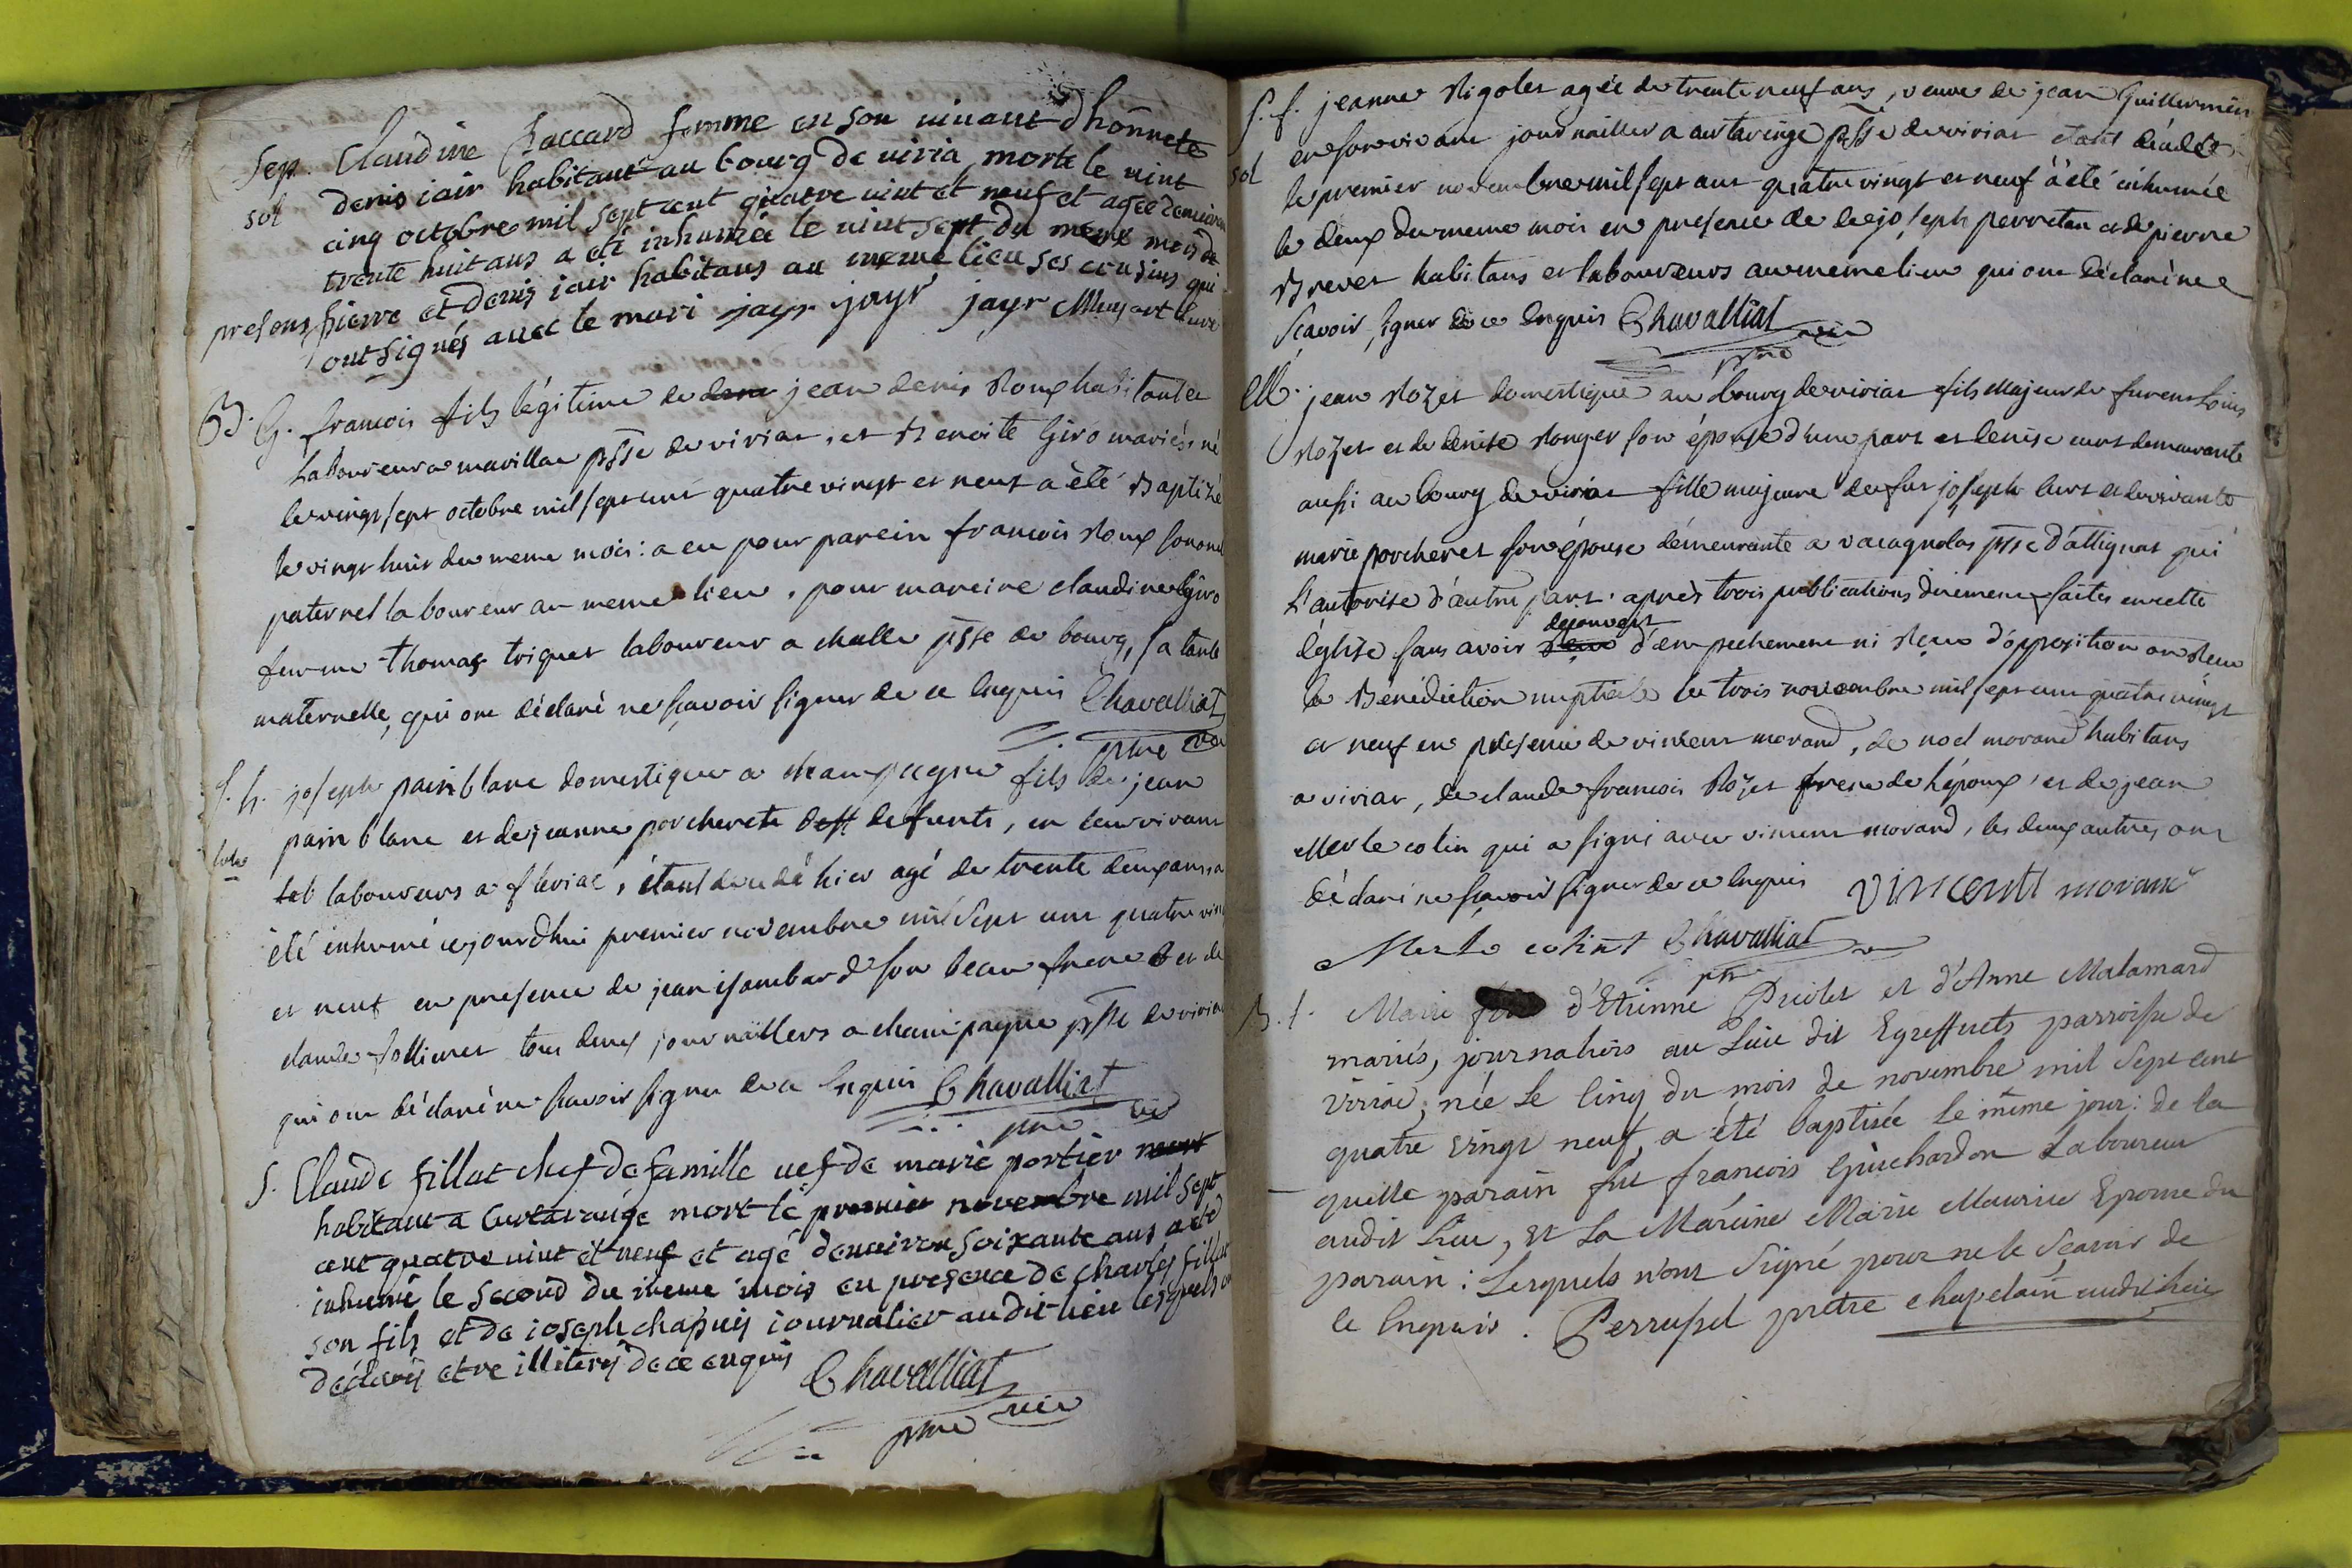 Sep. Claudine Chaccard femme en son vivant d'honnete
sol denis iair habitant au bourg de viria morte le vint
cinq octobre mil sept cent quatre vint et neuf et agée denviron
trente huit ans a été inhumée le vint sept du meme mois
presens pierre et denis iair habitans au meme lieu ses cousins qui
ont signés avec le mari jayr jayr jayr
B. G. francois fils légitime de jean denis Roux habitant et
Laboureur a marillac psse de viriat, et Benoite Giro mariés né
le vingt sept octobre mil sept cent quatre vingt et neuf a été Baptisé
le vingt huit du meme mois: a eu pour parein francois Roux son oncle
paternel laboureur au meme lieu, pour mareine claudine Giro
femme thomas triquet laboureur a challe psse de bourg, sa tante
maternelle, qui ont déclaré ne scavoir signer de ce Enquis Chavalliat
ptre vic
S. h. joseph pain blanc domestique a champagne fils de jean
pain blanc et de jeanne porcherete defunts, en leur vivant
laboureurs a fleriac, étant décédé hier agé de trente deux ans a
été inhumé cejourdhui premier novembre mil sept cent quatre vingt
et neuf en presence de jean isombard son beau frere et de
claude sollimet tous deux journalliers a champagne psse de viriat
qui ont déclaré ne scavoir signer de ce Enquis Chavalliat
ptre vic
S. Claude fillat chef de famille vef de marie portier
habitant a Curtaringe mort le premier novembre mil sept
cent quatre vint et neuf et agé denviron soixante ans a été
inhumé le second du meme mois en presence de charles fillat
son fils et de ioseph chapuis iournalier audit lieu lesquels ont
declarés etre illiterés de ce enquis Chavalliat
ptre vic
S. f. jeanne Rigolet agée de trente neuf ans, veuve de jean Guillermin
sol en son vivant journaillier a curtaringe psse de viriat étant décédée
le premier novembre mil sept cent quatre vingt et neuf a été inhumée
le deux du meme mois en presence de joseph perretan et de pierre
Brevet habitans et laboureurs au meme lieu qui ont déclaré ne
Scavoir signer de ce Enquis Chavalliat
ptre vic
M. jean Rozet domestique au bourg de viriat fils Majeur de furent Louis
Rozet et de denise Ronger son épouse d'une part et denise curt demeurante
aussi au bourg de viriat fille majeure de fut joseph curt et de vivante
marie porcheret son épouse démeurante a vacagnolas psse d'attignat qui
l'autorise d'autre part. après trois publications dûement faites en cette
église sans avoir decouvert d'empechement ni Reçu d'opposition ont Recu
la Bénédiction nuptiale le trois novembre mil sept cent quatre vingt
et neuf en présence de vincent morand, de noel morand habitans
a viriat, de claude francois Rozet frere de l'époux et de jean
Merle colin qui a signé avec vincent morand, les deux autres ont
déclaré ne scavoir signer de ce Enquis Vincent morand
Merle colint Chavalliat
ptre vic
B. f. Marie d'Etienne Priolet et d'Anne Malamard
mariés, journaliers au Lieu dit Egreffuets parroisse de
Viriac; née Le Cinq du mois de novembre mil Sept cent
quatre vingt neuf, a été baptisée le même jour: de la
quelle parain fut francois Guichardon Laboureur
audit Lieu, et La Maréine Marie Maurice Epouse du
parain: Lesquels n'ont Signé pour ne le Scavoir de
ce Enquis. Perrussel prêtre chapelain audit lieu